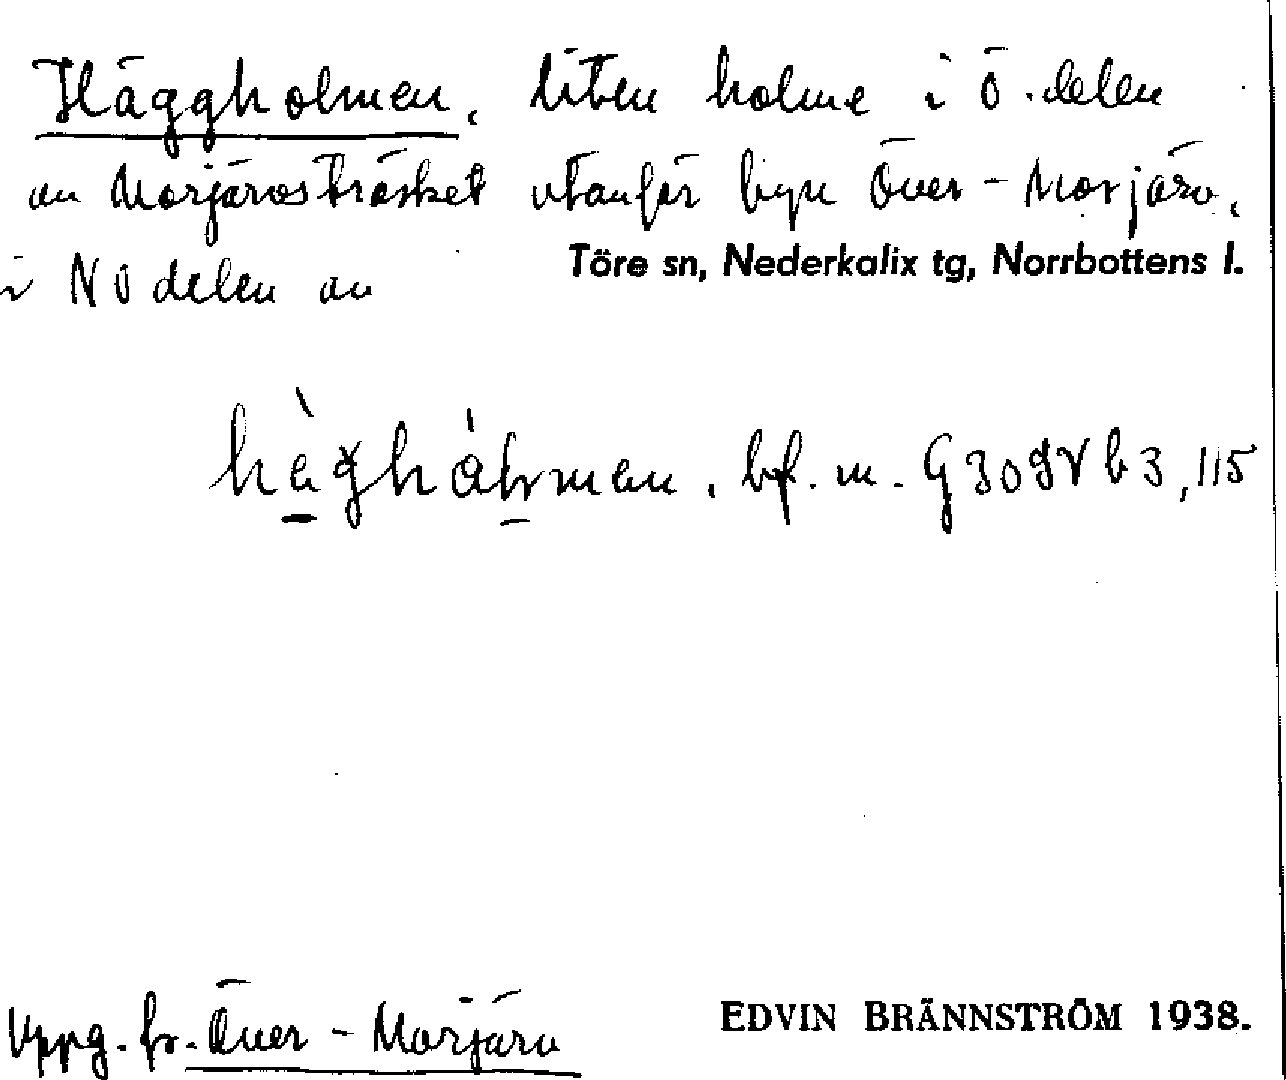 Häggholmen, liten holme i ö. delen
av Morjärvsträsket utanför byn Över-Morjärv,
Töre sn, Nederkalix tg, Norrbottens l.
i NÖ delen av
bf. m. G 3098 V b 3, 115
Uppg. fr. Över-Morjärv
EDVIN BRÄNNSTRÖM 1938.